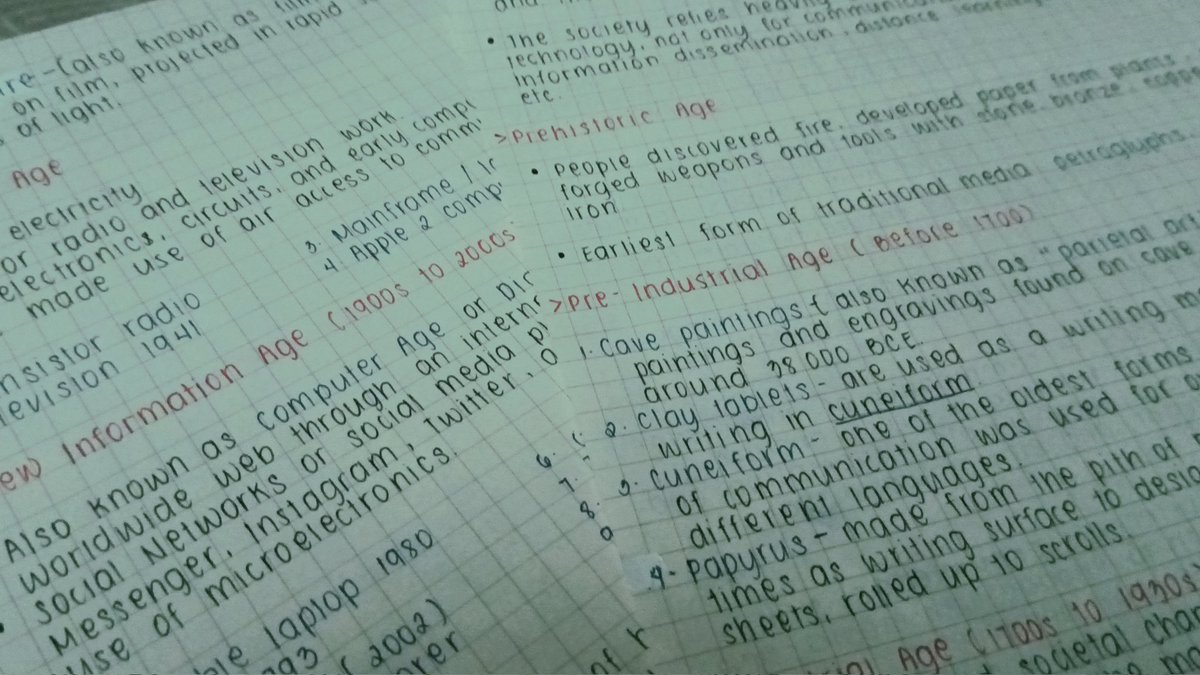 on film, projected in rapid
of light.
Age
electricity
or radio and television work.
electronics, circuits, and early
made use of air access to
3. Mainframe /
4 Apple 2
transistor radio
television 1941
New Information Age (1900s to 2000s
Also known as computer Age or
worldwide web through an
Social Networks or social media
Messenger, Instagram, Twitter,
use of microelectronics.
laptop 1980
(2002)
The society relies
technology, not only for
information dissemination, distance
etc.
>Prehistoric Age
• People discovered fire, developed paper from plants
forged weapons and tools with stone, bronze,
iron
• Earliest form of traditional media petroglyphs.
>Pre-Industrial Age (Before 1700)
1. Cave paintings (also known as "parietal
paintings and engravings found on cave
around 38 000 BCE.
2. Clay tablets - are used as a writing
writing in cuneiform.
3. Cuneiform - one of the oldest forms
of communication was used for
different languages.
4- Papyrus - made from the pith of
times as writing surface to
sheets, rolled up to scrolls.
Age (1700s to 1930s)
societal